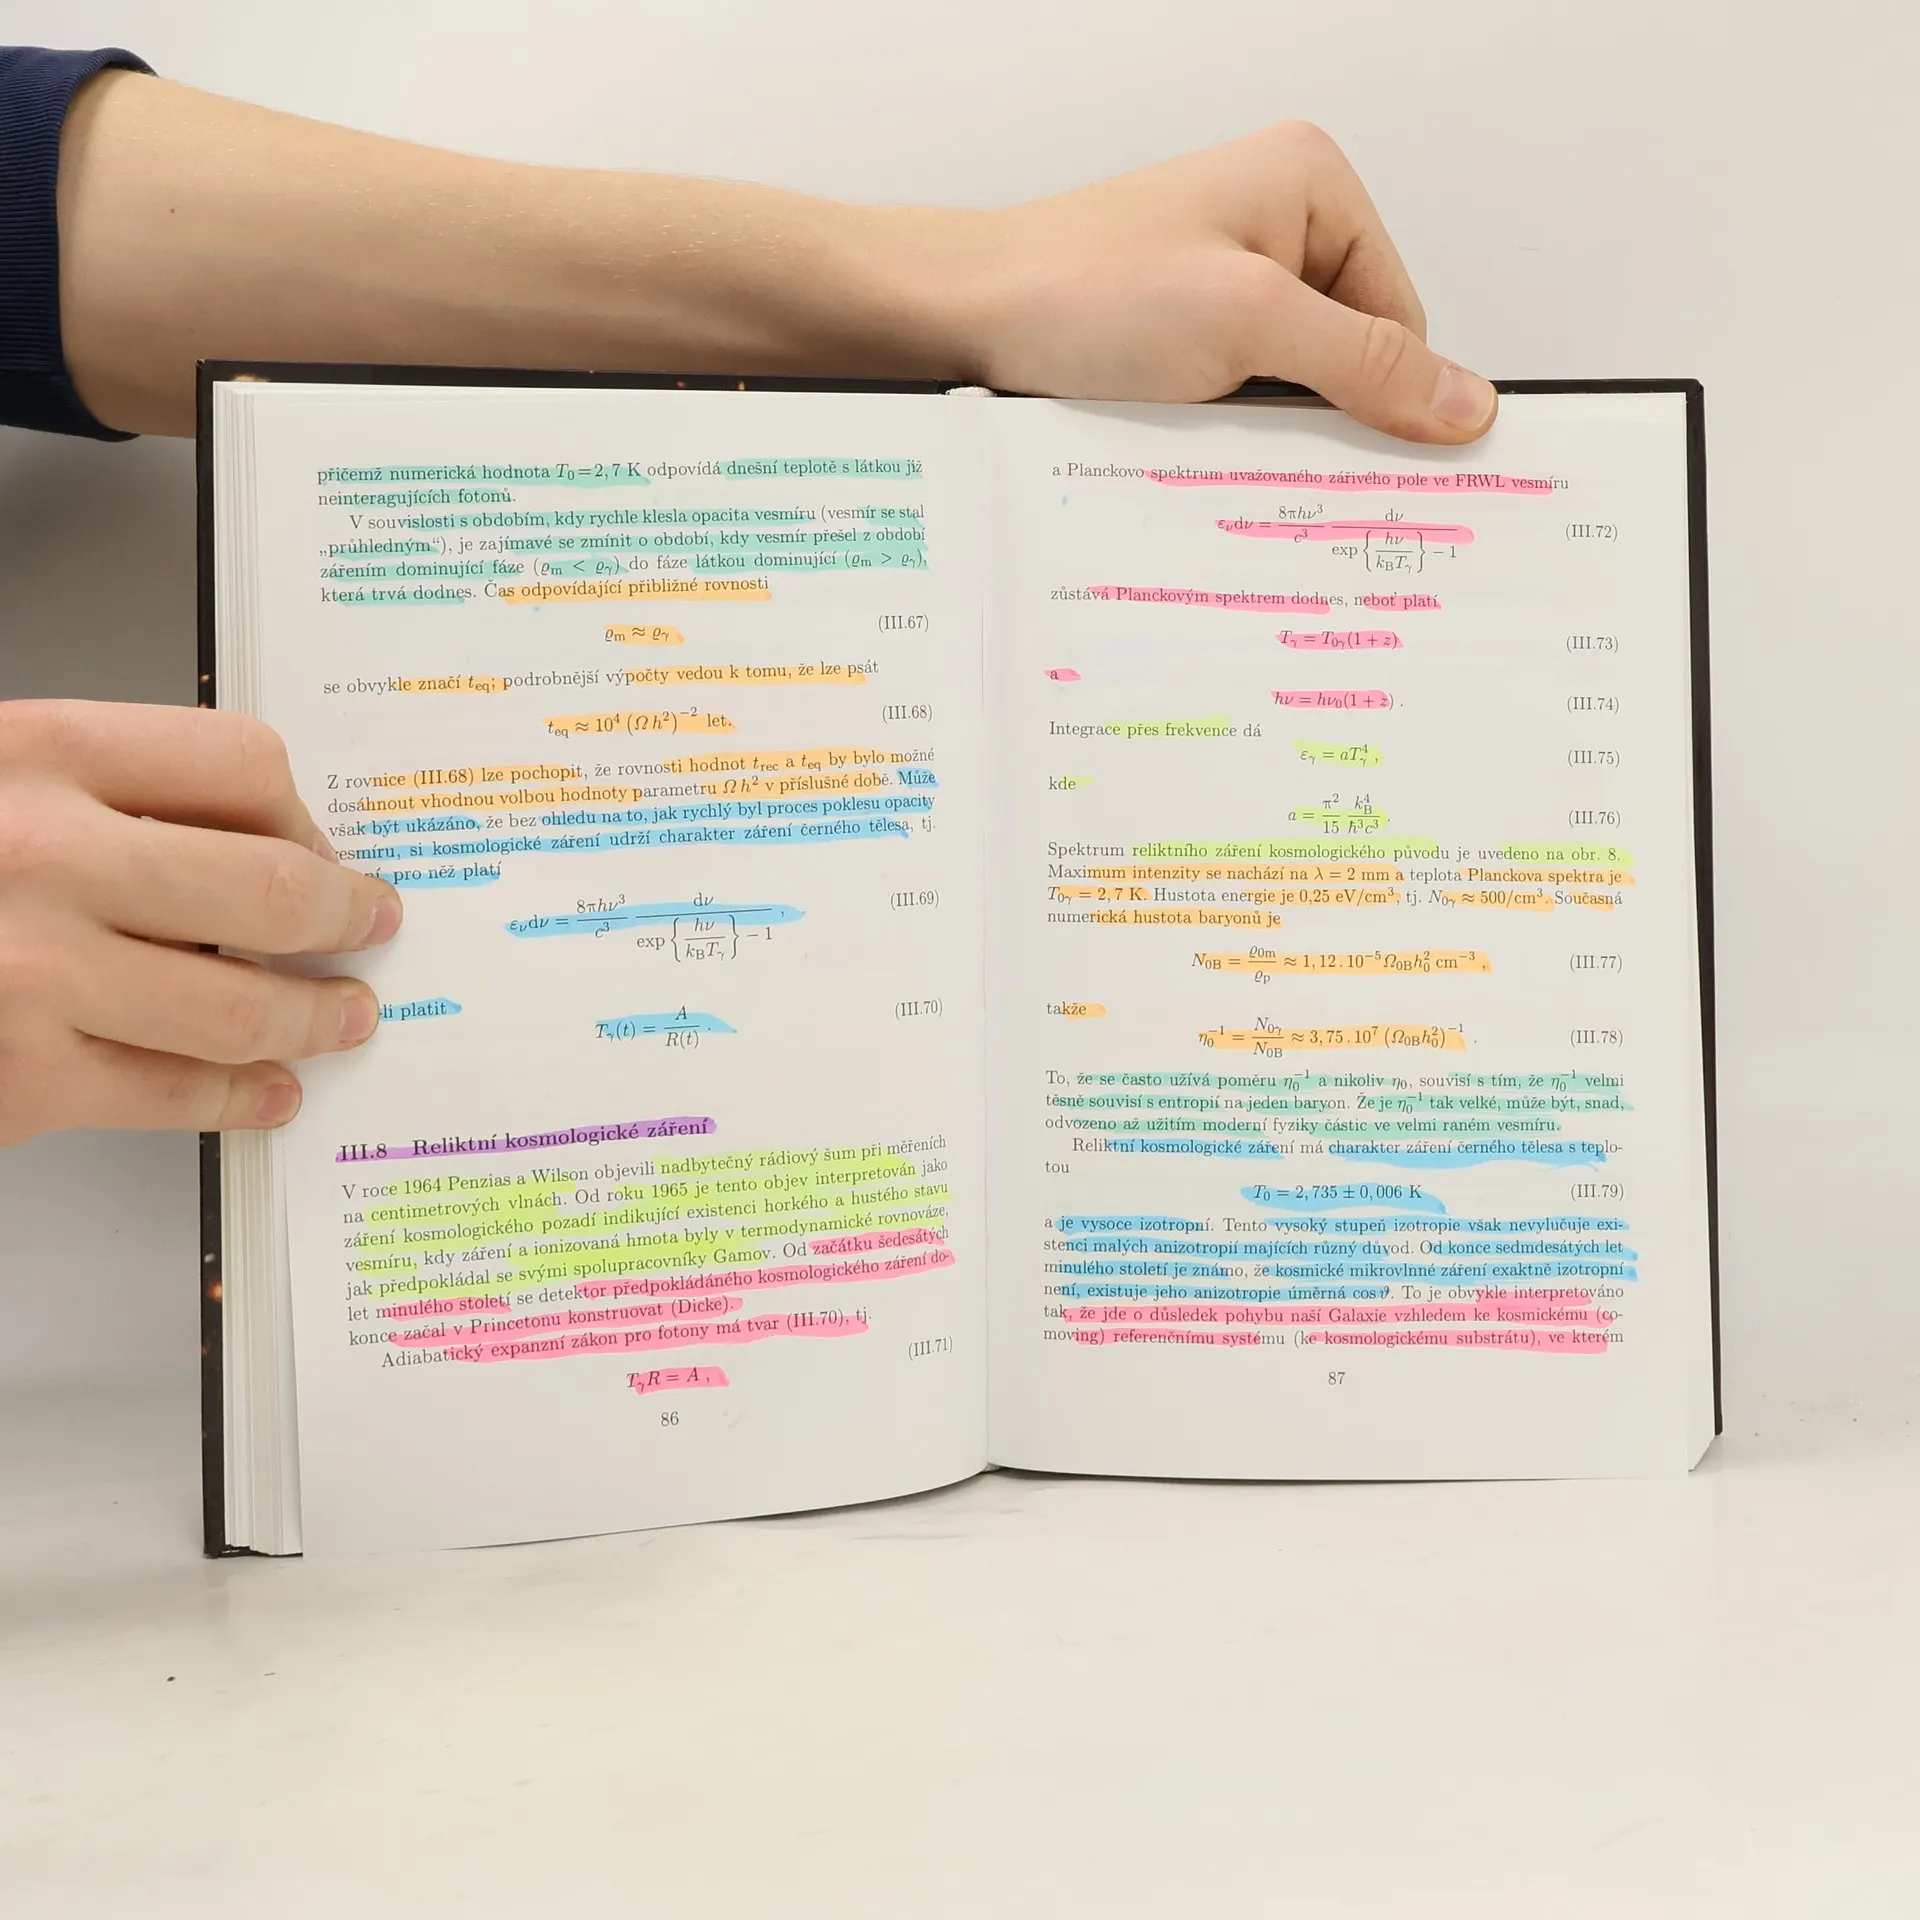 přičemž numerická hodnota T₀=2,7 K odpovídá dnešní teplotě s látkou již
neinteragujících fotonů.
V souvislosti s obdobím, kdy rychle klesla opacita vesmíru (vesmír se stal
„průhledným“), je zajímavé se zmínit o období, kdy vesmír přešel z období
zářením dominující fáze (ϱₘ < ϱ_γ) do fáze látkou dominující (ϱₘ > ϱ_γ),
která trvá dodnes. Čas odpovídající přibližné rovnosti
ϱₘ ≈ ϱ_γ (III.67)
se obvykle značí t_eq; podrobnější výpočty vedou k tomu, že lze psát
t_eq ≈ 10⁴ (Ω h²)⁻² let. (III.68)
Z rovnice (III.68) lze pochopit, že rovnosti hodnot t_rec a t_eq by bylo možné
dosáhnout vhodnou volbou hodnoty parametru Ω h² v příslušné době. Může
však být ukázáno, že bez ohledu na to, jak rychlý byl proces poklesu opacity
vesmíru, si kosmologické záření udrží charakter záření černého tělesa, tj.
pro něž platí
ε_ν dν = 8πhν³/c³ dν/(exp{hν/(k_B T_γ)} − 1) , (III.69)
-li platit
T_γ(t) = A/R(t) . (III.70)
III.8 Reliktní kosmologické záření
V roce 1964 Penzias a Wilson objevili nadbytečný rádiový šum při měřeních
na centimetrových vlnách. Od roku 1965 je tento objev interpretován jako
záření kosmologického pozadí indikující existenci horkého a hustého stavu
vesmíru, kdy záření a ionizovaná hmota byly v termodynamické rovnováze,
jak předpokládal se svými spolupracovníky Gamov. Od začátku šedesátých
let minulého století se detektor předpokládáného kosmologického záření do-
konce začal v Princetonu konstruovat (Dicke).
Adiabatický expanzní zákon pro fotony má tvar (III.70), tj.
T_γ R = A , (III.71)
86
a Planckovo spektrum uvažovaného zářivého pole ve FRWL vesmíru
ε_ν dν = 8πhν³/c³ dν/(exp{hν/(k_B T_γ)} − 1) (III.72)
zůstává Planckovým spektrem dodnes, neboť platí
T_γ = T₀γ(1 + z) (III.73)
a
hν = hν₀(1 + z) . (III.74)
Integrace přes frekvence dá
ε_γ = aT_γ⁴ , (III.75)
kde
a = π²/15 k_B⁴/(ħ³c³) . (III.76)
Spektrum reliktního záření kosmologického původu je uvedeno na obr. 8.
Maximum intenzity se nachází na λ = 2 mm a teplota Planckova spektra je
T₀γ = 2,7 K. Hustota energie je 0,25 eV/cm³, tj. N₀γ ≈ 500/cm³. Současná
numerická hustota baryonů je
N₀B = ϱ₀ₘ/ϱₚ ≈ 1,12 . 10⁻⁵ Ω₀B h₀² cm⁻³ , (III.77)
takže
η₀⁻¹ = N₀γ/N₀B ≈ 3,75 . 10⁷ (Ω₀B h₀²)⁻¹ . (III.78)
To, že se často užívá poměru η₀⁻¹ a nikoliv η₀, souvisí s tím, že η₀⁻¹ velmi
těsně souvisí s entropií na jeden baryon. Že je η₀⁻¹ tak velké, může být, snad,
odvozeno až užitím moderní fyziky částic ve velmi raném vesmíru.
Reliktní kosmologické záření má charakter záření černého tělesa s teplo-
tou
T₀ = 2,735 ± 0,006 K (III.79)
a je vysoce izotropní. Tento vysoký stupeň izotropie však nevylučuje exi-
stenci malých anizotropií majících různý důvod. Od konce sedmdesátých let
minulého století je známo, že kosmické mikrovlnné záření exaktně izotropní
není, existuje jeho anizotropie úměrná cos ϑ. To je obvykle interpretováno
tak, že jde o důsledek pohybu naší Galaxie vzhledem ke kosmickému (co-
moving) referenčnímu systému (ke kosmologickému substrátu), ve kterém
87